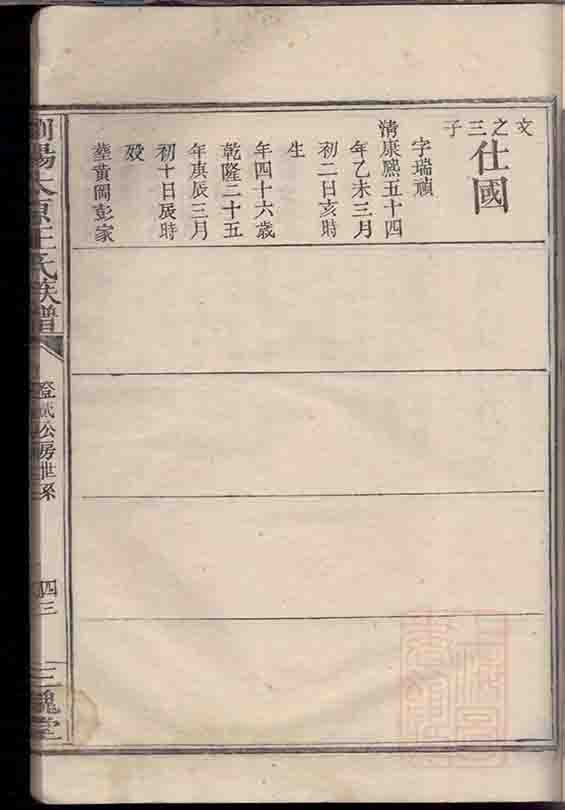 文之三子
仕國
字瑞禎
清康熙五十四
年乙未三月
初二日亥時
生
年四十六歲
乾隆二十五
年庚辰三月
初十日辰時
歿
塟黃岡彭家
瀏陽太原王氏族譜
登貳公房世系
四三
三槐堂